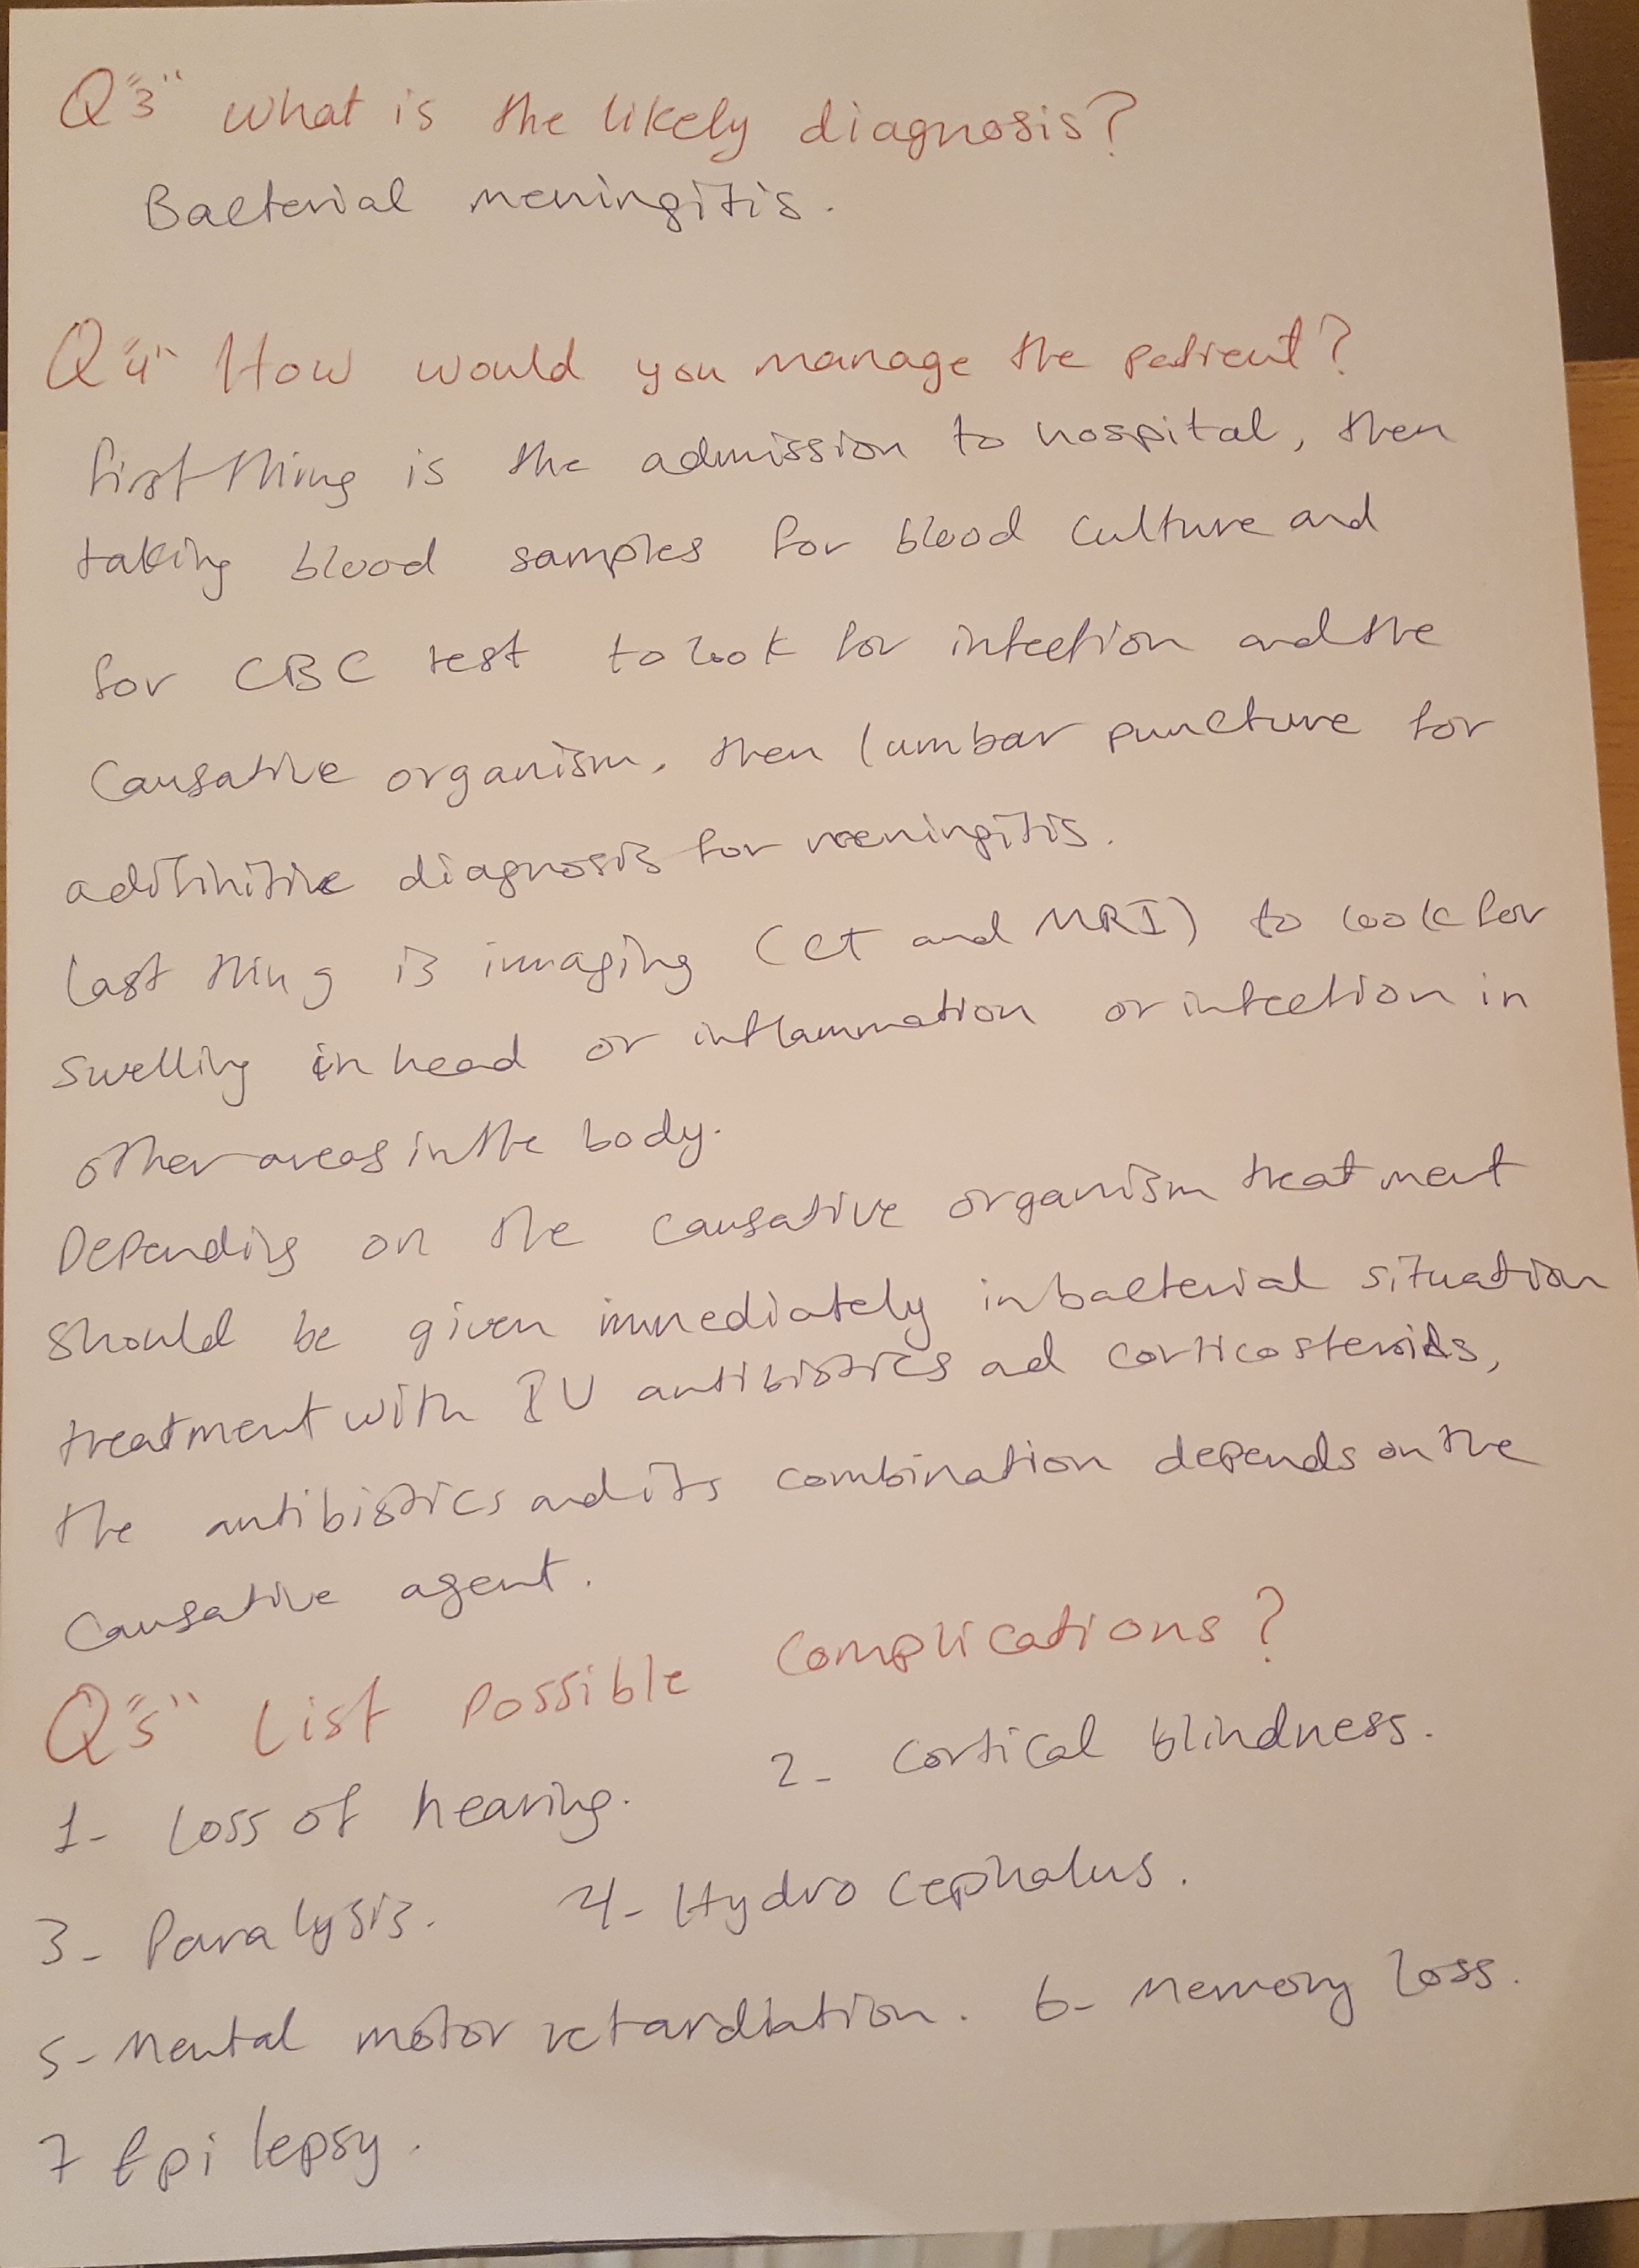 Q"3" What is the likely diagnosis?
Bacterial meningitis.
Q"4" How would you manage the patient?
first thing is the admission to hospital, then
taking blood samples for blood culture and
for CBC test to look for infection and the
Causative organism, then lumbar puncture for
a difinitive diagnosis for meningitis.
last thing is imaging (CT and MRI) to look for
swelling in head or inflammation or infection in
other areas in the body.
Depending on the causative organism treatment
should be given immediately in bacterial situation
treatment with IV antibiotics ad corticosteroids,
the antibiotics and its combination depends on the
Causative agent.
Q"5" List possible complications?
1- loss of hearing. 2- cortical blindness.
3- Paralysis. 4- Hydrocephalus.
5- Mental motor retardation. 6- Memory loss.
7 Epilepsy.